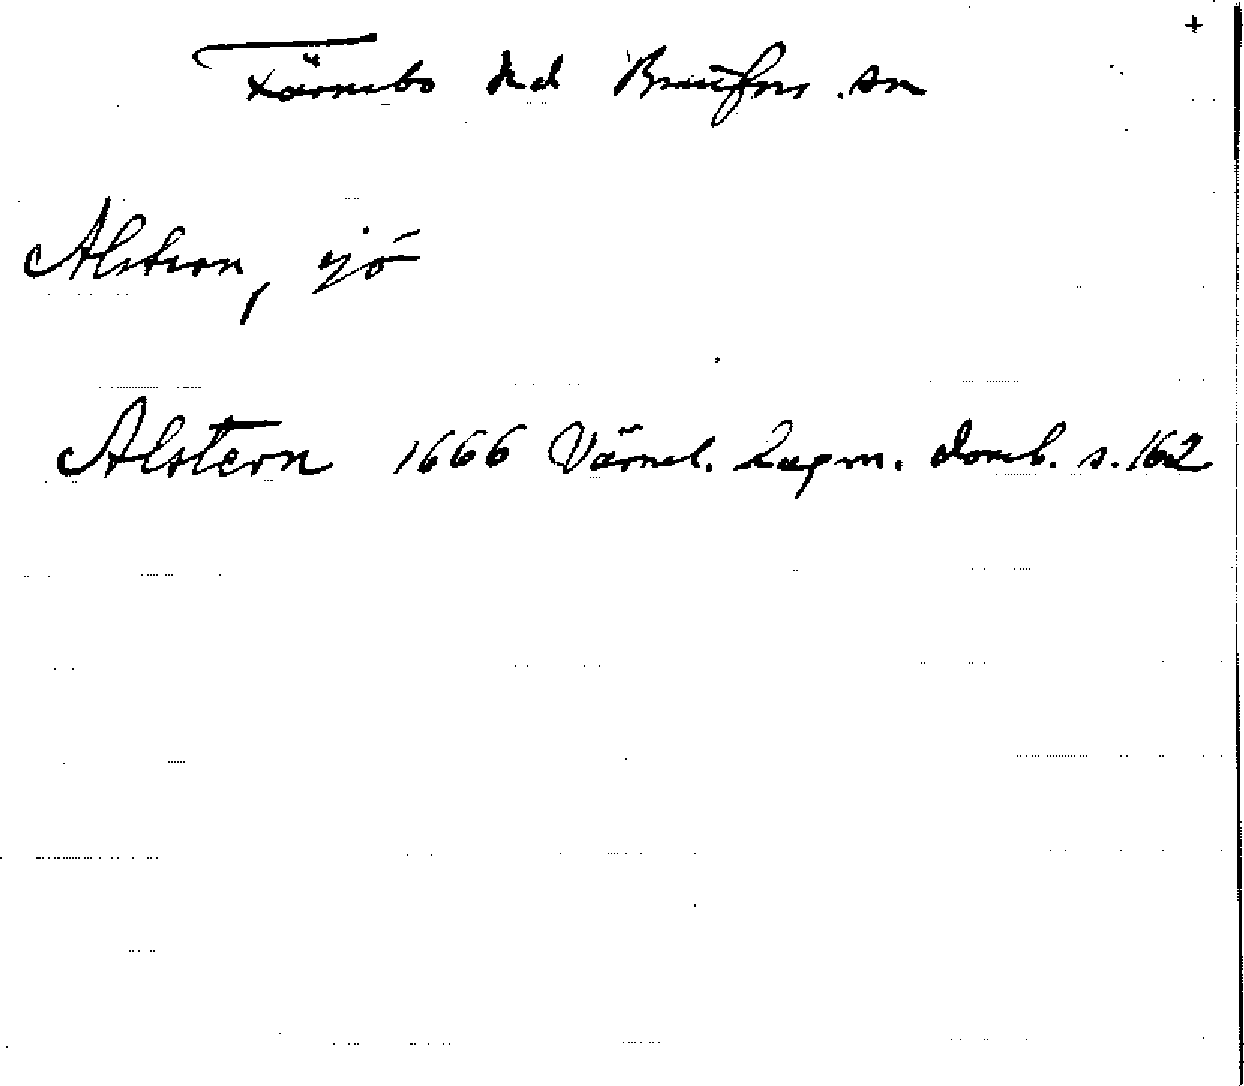 +
Färnebo hd Brattfors sn
Alstern, sjö
Alstern 1666 Värml. Lagm. domb. s. 162